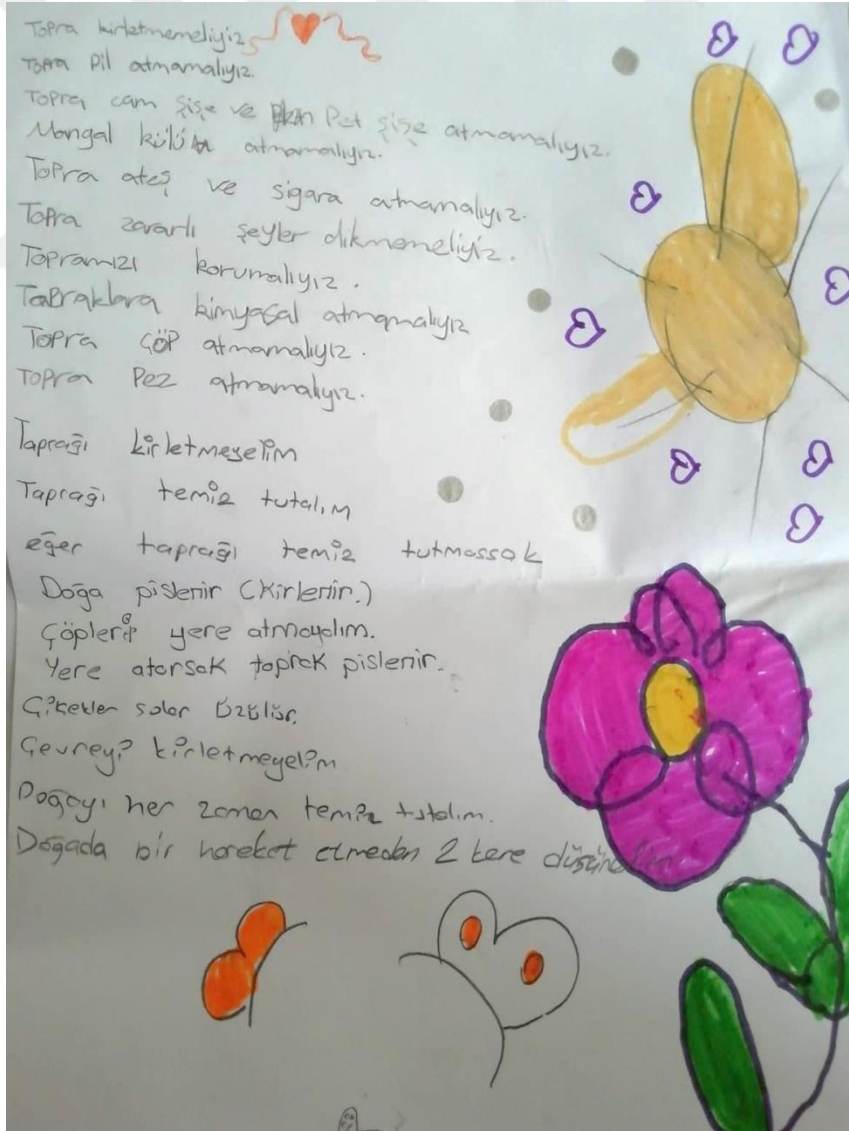 Topra kirletmemeliyiz
Topra Pil atmamalıyız
Topra cam şişe ve Pet şişe atmamalıyız.
Mangal külü atmamalıyız.
Topra ateş ve sigara atmamalıyız.
Topra zararlı şeyler dikmemeliyiz.
Topramızı korumalıyız.
Topraklara kimyasal atmamalıyız
Topra ÇÖP atmamalıyız.
Topra Pez atmamalıyız.
Taprağı kirletmeyelim
Taprağı temiz tutalım
eğer taprağı temiz tutmassak
Doğa pislenir (Kirlenir.)
Çöpleri yere atmayalım.
Yere atarsak toprak pislenir.
Çiçekler solar üzülür.
Çevreyi kirletmeyelim
Doğayı her zaman temiz tutalım.
Doğada bir hareket etmeden 2 kere düşünelim